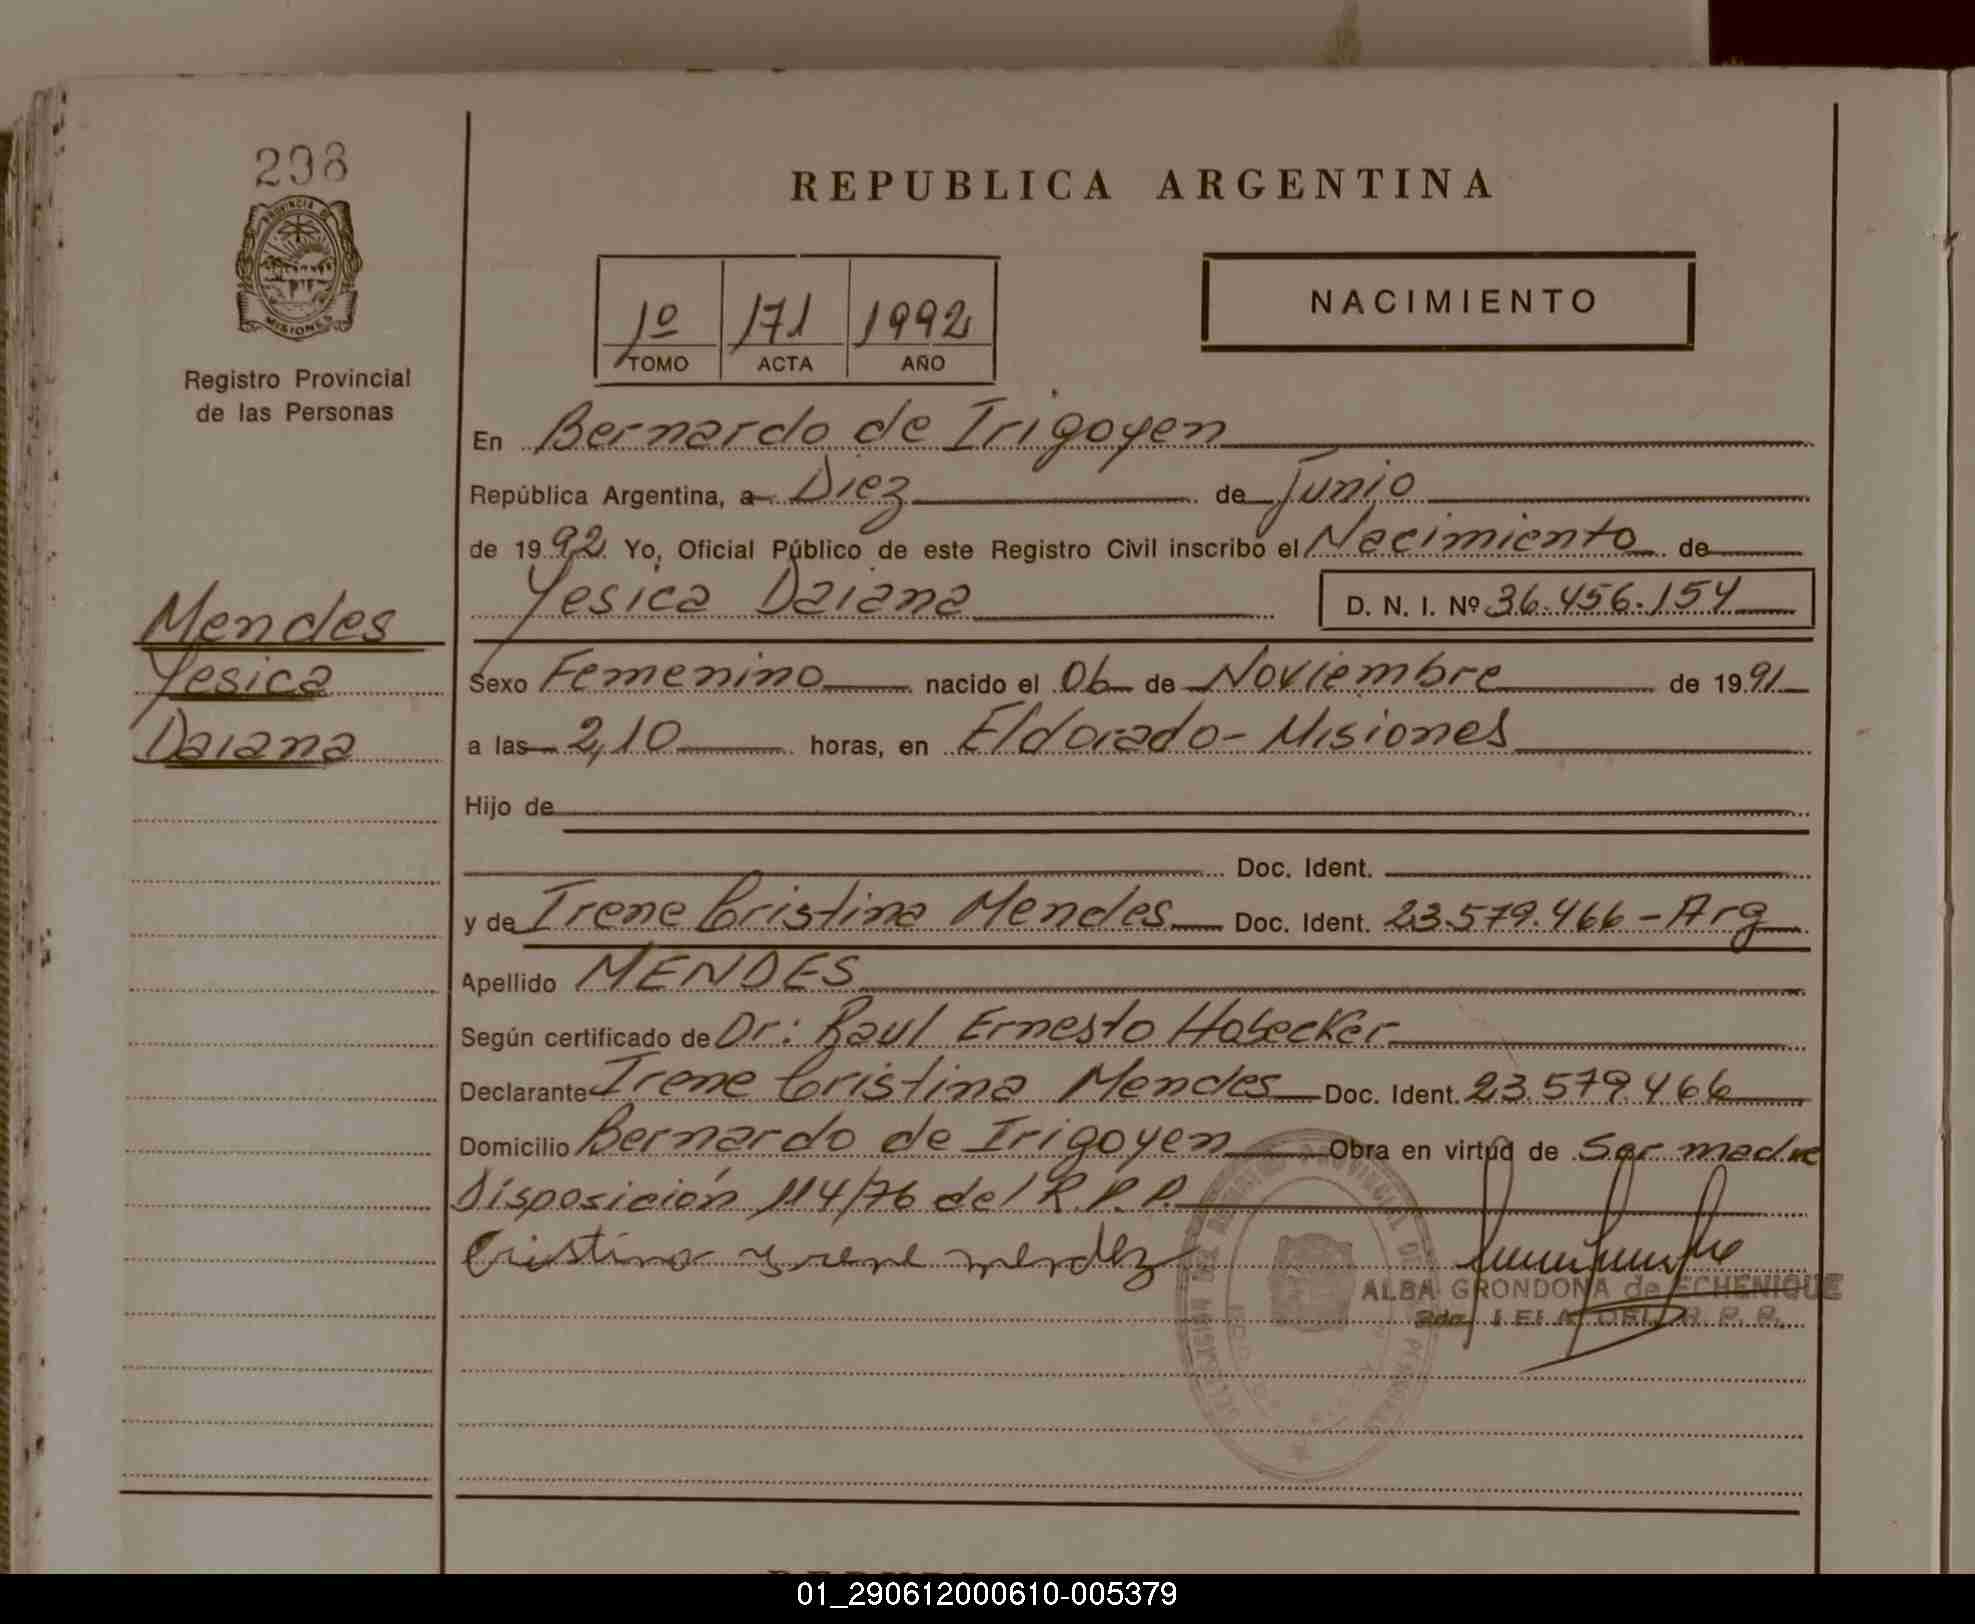 298
PROVINCIA DE
MISIONES
Registro Provincial
de las Personas
REPUBLICA ARGENTINA
1º 171 1992
TOMO ACTA AÑO
NACIMIENTO
En Bernardo de Irigoyen
República Argentina, a Diez de Junio
de 1992 Yo, Oficial Público de este Registro Civil inscribo el Nacimiento de
Yesica Daiana D. N. I. Nº 36.456.154
Mendes
Yesica
Daiana
Sexo Femenino nacido el 06 de Noviembre de 1991
a las 2,10 horas, en Eldorado - Misiones
Hijo de
Doc. Ident.
y de Irene Cristina Mendes Doc. Ident. 23.579.466 - Arg
Apellido MENDES
Según certificado de Dr: Raul Ernesto Hobecker
Declarante Irene Cristina Mendes Doc. Ident. 23.579.466
Domicilio Bernardo de Irigoyen Obra en virtud de Ser madre
Disposición 114/76 del R.P.P.
Cristina Yrene mendez
ALBA GRONDONA de ECHENIQUE
DEL R. P. P.
01_290612000610-005379